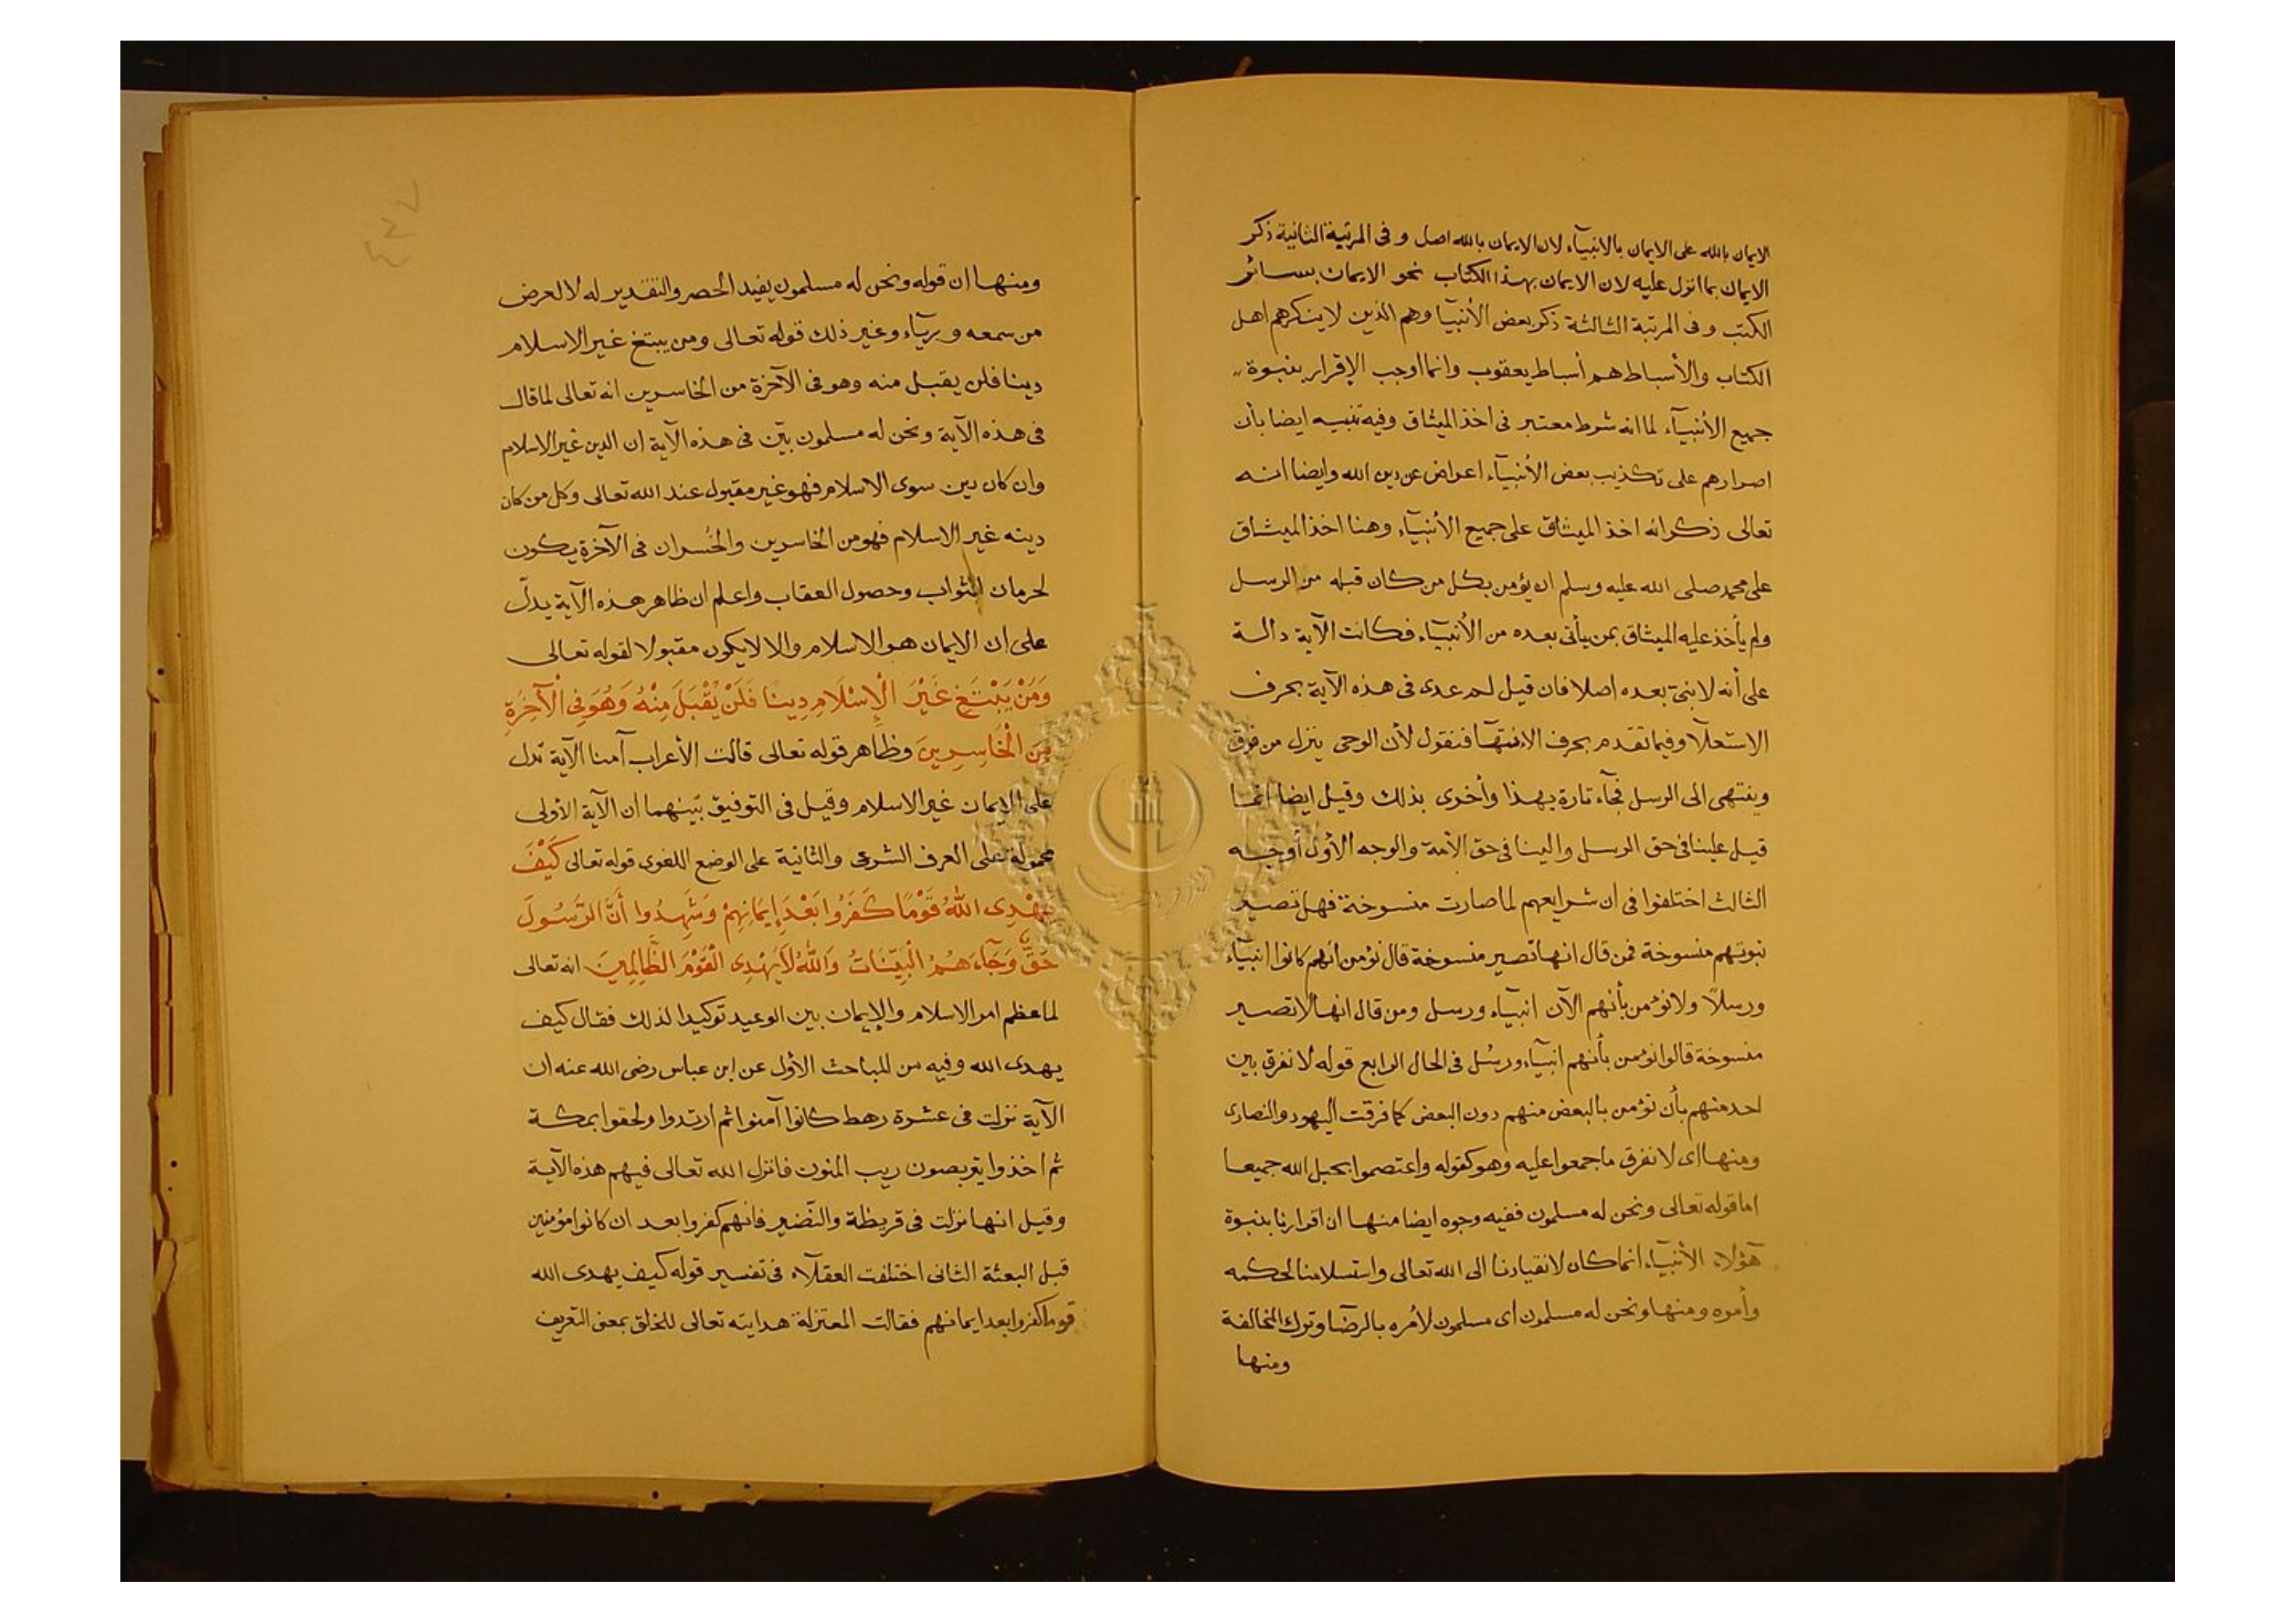 الايمان بالله على الايمان بالانبيآء لان الايمان بالله اصل و فى المرتبة الثانية ذكر
الايمان بما انزل عليه لان الايمان بهذا الكتاب نحو الايمان بسائر
الكتب وفى المرتبة الثالثة ذكر بعض الأنبيآ وهم الذين لا ينكرهم اهل
الكتاب والأسباط هم أسباط يعقوب وانما اوجب الإقرار بنبوة
جميع الأنبيآء لما انه شرط معتبر فى اخذ الميثاق وفيه تنبيه ايضا بأن
اصرارهم على تكذيب بعض الأنبيآء اعراض عن دين الله وايضا انه
تعالى ذكر انه اخذ الميثاق على جميع الأنبيآء وهنا اخذ الميثاق
على محمد صلى الله عليه وسلم ان يؤمن بكل من كان قبله من الرسل
ولم يأخذ عليه الميثاق بمن يأتى بعده من الأنبيآء فكانت الآية دالة
على أنه لا نبىّ بعده اصلا فان قيل لم عدى فى هذه الآية بحرف
الاستعلآ وفيما تقدم بحرف الانتهآ فنقول لأن الوحى ينزل من فوق
وينتهى الى الرسل فجآء تارة بهذا وأخرى بذلك وقيل ايضا انما
قيل علينا فى حق الرسل والينا فى حق الأمة والوجه الأول أوجه
الثالث اختلفوا فى ان شرايعهم لما صارت منسوخة فهل تصير
نبوتهم منسوخة فمن قال انها تصير منسوخة قال نؤمن انهم كانوا انبيآء
ورسلاً ولا نؤمن بأنهم الآن انبيآء ورسل ومن قال انها لا تصير
منسوخة قالوا نؤمن بأنهم انبيآء ورسُل فى الحال الرابع قوله لا نفرق بين
احد منهم بأن نؤمن بالبعض منهم دون البعض كما فرقت اليهود والنصارى
ومنها اى لا نفرق ما جمعوا عليه وهو كقوله واعتصموا بحبل الله جميعا
اما قوله تعالى ونحن له مسلمون ففيه وجوه ايضا منها ان اقرارنا بنبوة
هؤلاء الأنبيآء انما كان لانقيادنا الى الله تعالى واستسلامنا لحكمه
وأمره ومنها ونحن له مسلمون اى مسلمون لأمره بالرضآ وترك المخالفة
ومنها
ومنها ان قوله ونحن له مسلمون يفيد الحصر والتقدير له لا لعرض
من سمعه و ريآء وغير ذلك قوله تعالى ومن يبتغ غير الاسلام
دينا فلن يقبل منه وهو فى الآخرة من الخاسرين انه تعالى لما قال
فى هذه الآية ونحن له مسلمون بيّن فى هذه الآية ان الدين غير الاسلام
وان كان دين سوى الاسلام فهو غير مقبول عند الله تعالى وكل من كان
دينه غير الاسلام فهو من الخاسرين والخُسران فى الآخرة يكون
لحرمان الثواب وحصول العقاب واعلم ان ظاهر هذه الآية يدلّ
على ان الايمان هو الاسلام والا لا يكون مقبولا لقوله تعالى
وَمَنْ يَبْتَغِ غَيْرَ الْإِسْلَامِ دِينًا فَلَنْ يُقْبَلَ مِنْهُ وَهُوَ فِى الْآخِرَةِ
مِنَ الْخَاسِرِينَ وظاهر قوله تعالى قالت الأعراب آمنا الآية تدل
على الايمان غير الاسلام وقيل فى التوفيق بينهما ان الآية الأولى
محمولة على العرف الشرعى والثانية على الوضع اللغوى قوله تعالى كَيْفَ
يَهْدِى اللهُ قَوْمًا كَفَرُوا بَعْدَ إِيمَانِهِمْ وَشَهِدُوا أَنَّ الرَّسُولَ
حَقٌّ وَجَآءَهُمُ الْبَيِّنَاتُ وَاللهُ لَا يَهْدِى الْقَوْمَ الظَّالِمِينَ انه تعالى
لما عظم امر الاسلام والإيمان بين الوعيد توكيدا لذلك فقال كيف
يهدى الله وفيه من المباحث الأول عن ابن عباس رضى الله عنه ان
الآية نزلت فى عشرة رهط كانوا آمنوا ثم ارتدوا ولحقوا بمكة
ثم اخذوا يتربصون ريب المنون فانزل الله تعالى فيهم هذه الآية
وقيل انها نزلت فى قريظة والنّضير فانهم كفروا بعد ان كانوا مؤمنين
قبل البعثة الثانى اختلفت العقلآء فى تفسير قوله كيف يهدى الله
قوما كفروا بعد ايمانهم فقالت المعتزلة هدايته تعالى للخلق بمعنى التعريف